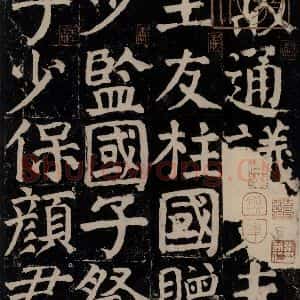 故通議大
王友柱國贈
少監國子祭
子少保顏君
Shufawang.cn